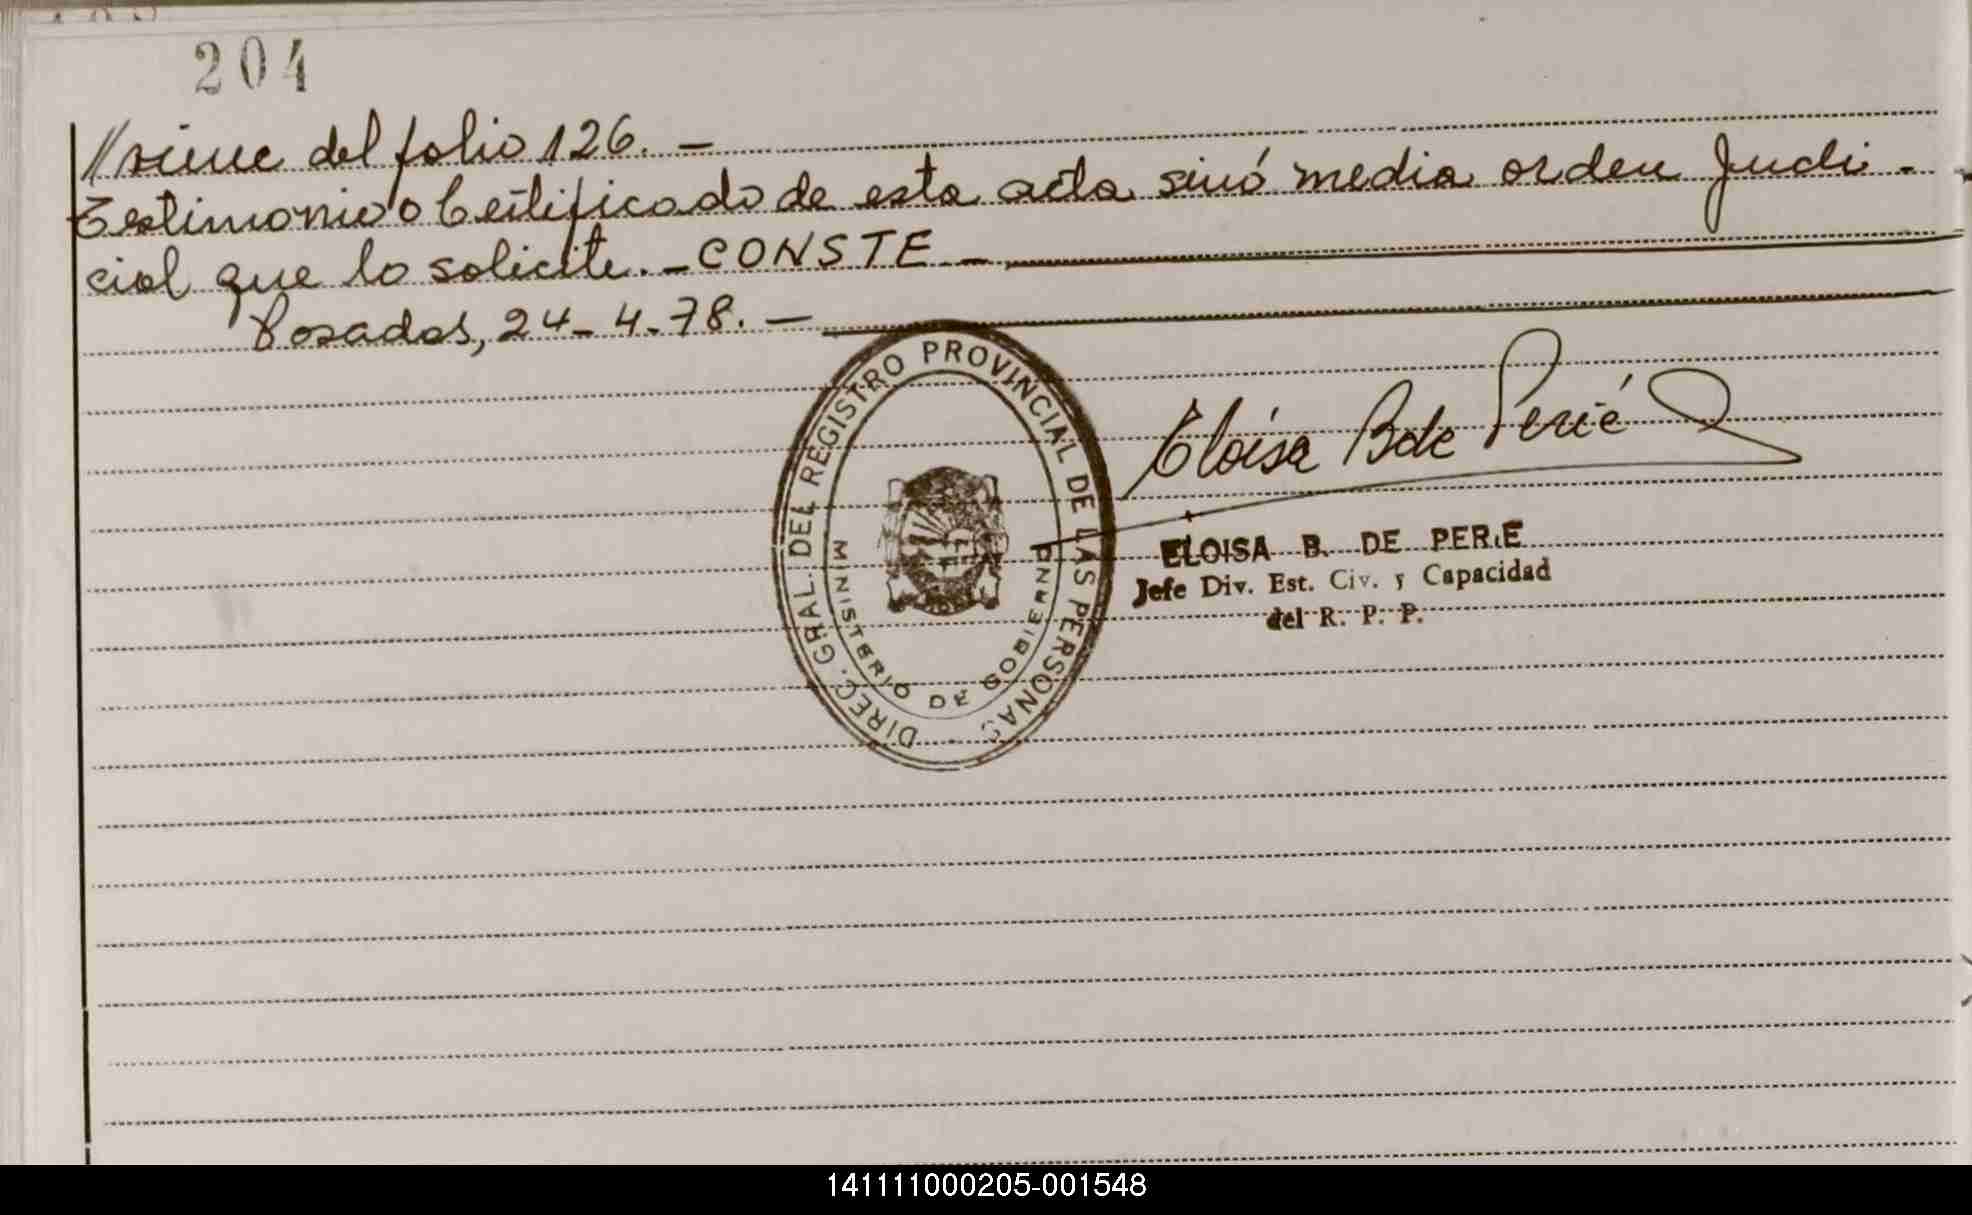 204
//viene del folio 126. -
Testimonio o Certificado de esta acta sinó media orden Judi-
cial que lo solicite. - CONSTE -
Posadas, 24-4-78. -
DIREC. GRAL. DEL REGISTRO PROVINCIAL DE LAS PERSONAS
MINISTERIO DE GOBIERNO
Eloísa B de Perié
ELOISA B. DE PERIE
Jefe Div. Est. Civ. y Capacidad
del R. P. P.
141111000205-001548